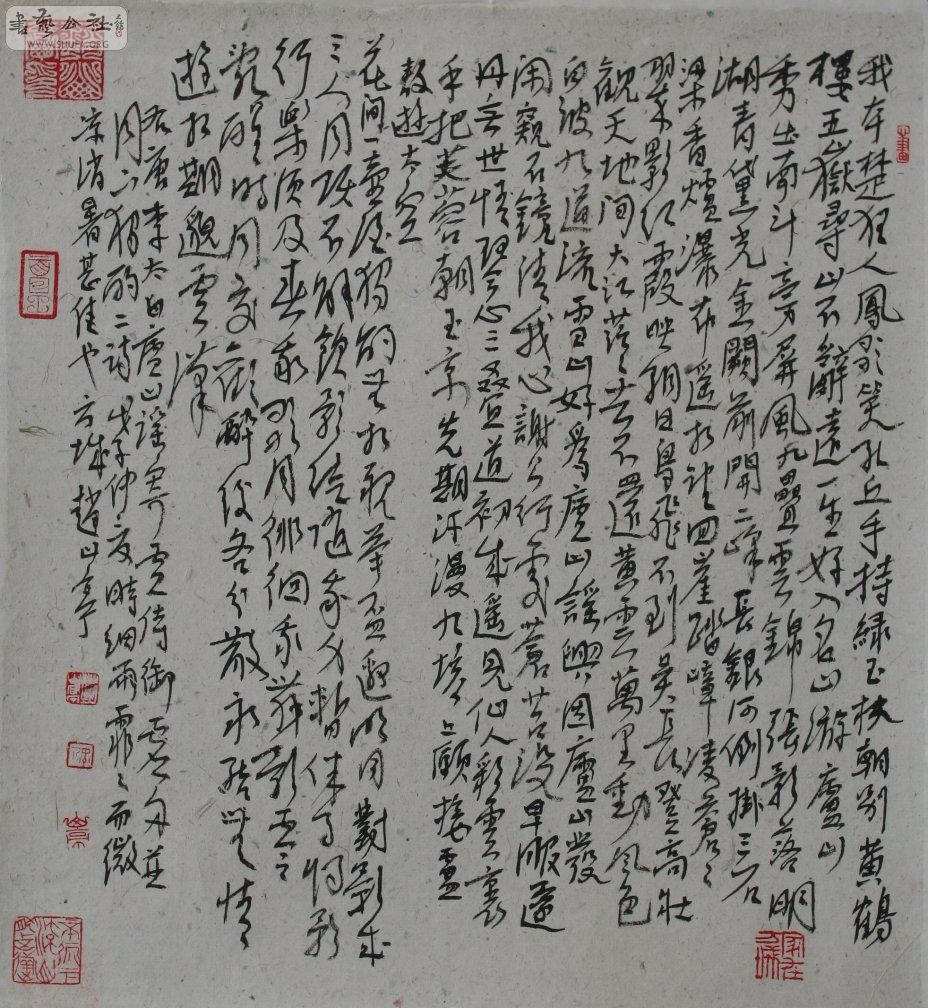 我本楚狂人鳳歌笑孔丘手持綠玉杖朝別黃鶴
樓五嶽尋山不辭遠一生好入名山游廬山
秀出南斗旁屏風九疊雲錦張影落明
湖青黛光金闕前開二峰長銀河倒掛三石
梁香爐瀑布遙相望回崖踏嶂凌蒼蒼
翠影紅霞映朝日鳥飛不到吳天長登高壯
觀天地間大江茫茫去不還黃雲萬里動風色
白波九道流雪山好為廬山謠興因廬山發
閑窺石鏡清我心謝公行處蒼苔沒早服還
丹無世情琴心三疊道初成遙見仙人彩雲裏
手把芙蓉朝玉京先期汗漫九垓上願接盧
敖遊太空
花間一壺酒獨酌無相親舉杯邀明月對影成
三人月既不解飲影徒隨我身暫伴月將影
行樂須及春我歌月徘徊我舞影零
亂醒時同交歡醉後各分散永結無情
遊相期邈雲漢
右唐李太白廬山謠寄盧侍御虛舟并
月下獨酌二詩戊子仲夏時細雨霏霏而微
涼消暑甚佳也方城趙山亭
書藝公社
WWW.SHUFA.ORG